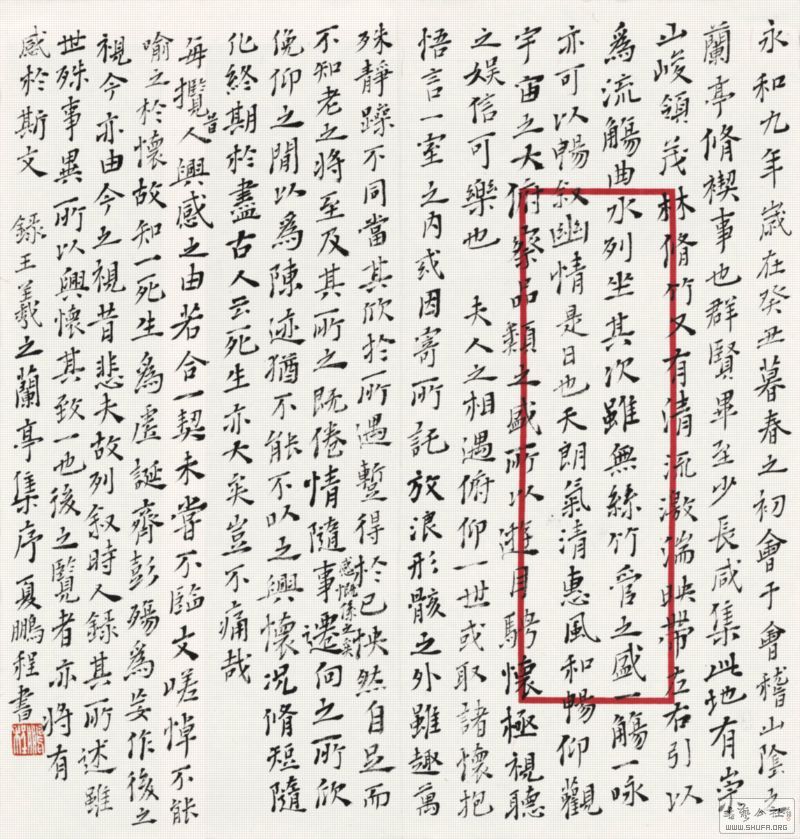 永和九年歲在癸丑暮春之初會于會稽山陰之
蘭亭脩禊事也群賢畢至少長咸集此地有崇
山峻領茂林脩竹又有清流激湍映帶左右引以
爲流觴曲水列坐其次雖無絲竹管之盛一觴一咏
亦可以暢叙幽情是日也天朗氣清惠風和暢仰觀
宇宙之大俯察品類之盛所以遊目騁懷極視聽
之娱信可樂也 夫人之相遇俯仰一世或取諸懷抱
悟言一室之内或因寄所託放浪形骸之外雖趣萬
殊靜躁不同當其欣於所遇蹔得於己怏然自足而
不知老之將至及其所之既倦情隨事遷向之所欣
感慨係之矣
俛仰之閒以爲陳迹猶不能不以之興懷况脩短隨
化終期於盡古人云死生亦大矣豈不痛哉
每攬昔人興感之由若合一契未嘗不臨文嗟悼不能
喻之於懷故知一死生爲虚誕齊彭殤爲妄作後之
視今亦由今之視昔悲夫故列叙時人錄其所述雖
世殊事異所以興懷其致一也後之覽者亦將有
感於斯文 錄王羲之蘭亭集序夏鵬程書
書藝公社
WWW.SHUFA.ORG